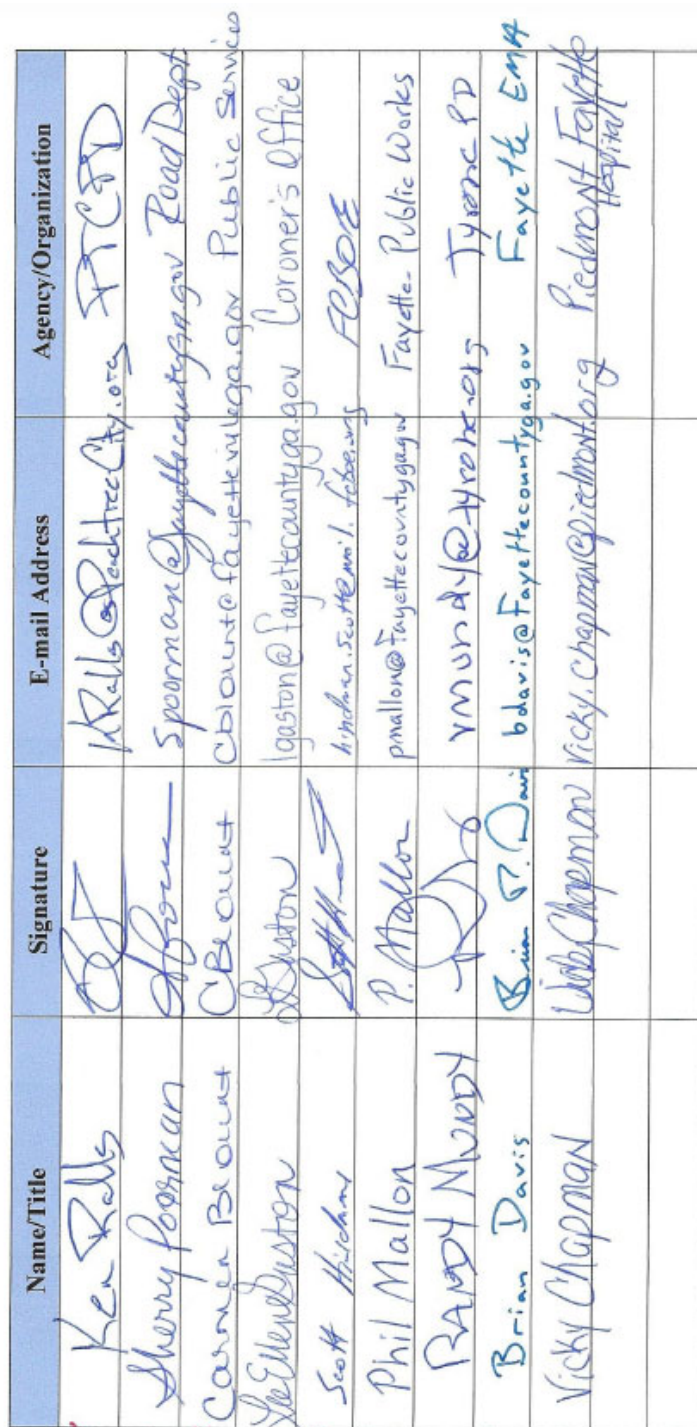 Name/Title Signature E-mail Address Agency/Organization
Ken Ralls KRalls@PeachtreeCity.org PTCPD
Sherry Poorman Spoorman@fayettecountyga.gov Road Dept
Carmen Blount CBlount Cblount@fayetteville-ga.gov Public Services
LeeEllen Gaston LGaston lgaston@fayettecountyga.gov Coroner's Office
Scott Hindman hindman.scott@mail.fcboe.org FCBOE
Phil Mallon P. Mallon pmallon@fayettecountyga.gov Fayette Public Works
RANDY MUNDY rmundy@tyrone.org Tyrone PD
Brian Davis Brian P. Davis bdavis@fayettecountyga.gov Fayette EMA
Vicky Chapman Vicky Chapman Vicky.Chapman@piedmont.org Piedmont Fayette
Hospital